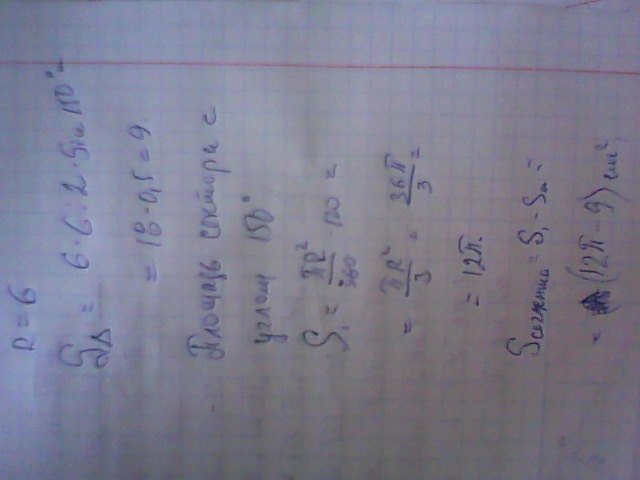 R = 6
S△ = 6·6:2·Sin 150° =
= 18·0,5 = 9.
Площадь сектора с
углом 150°
S₁ = πR²/360 · 120 =
= πR²/3 = 36π/3 =
= 12π.
Sсегмента = S₁ - S△ =
= (12π - 9) см²